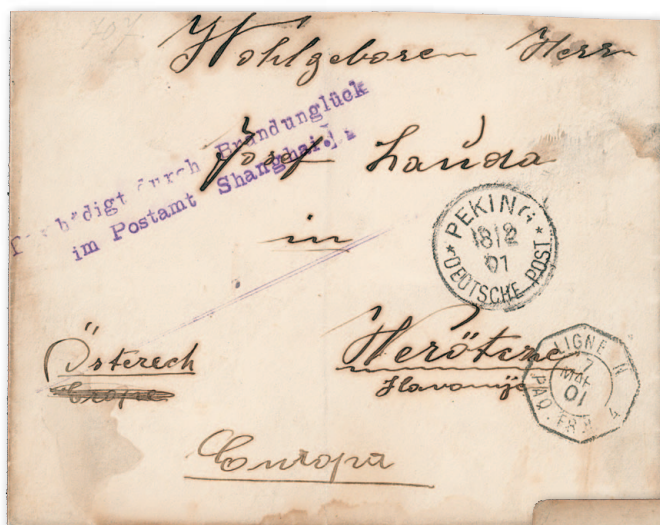 707
Wohlgeboren Herrn
Josef Lauda
in
Werötcze
Slavonije
Österech
Europa
Europa
Beschädigt durch Brandunglück
im Postamt Shanghai.
PEKING
18/2
01
DEUTSCHE POST
LIGNE N
7
MAR
01
PAQ. FR. N 4